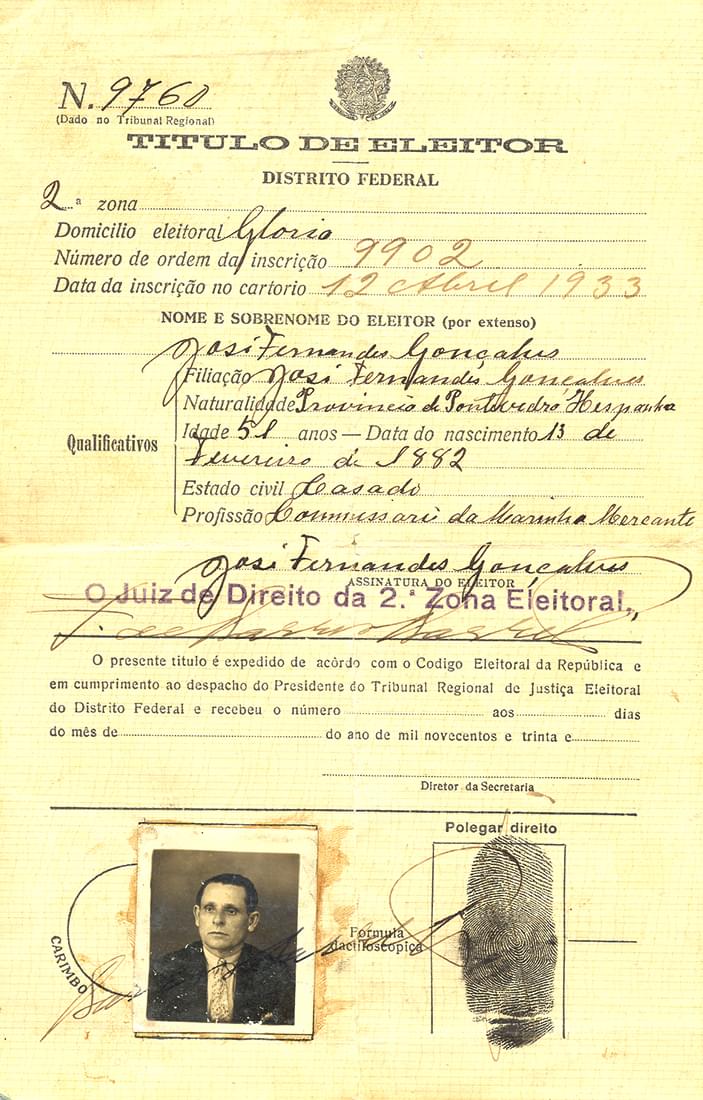 N. 9760
(Dado no Tribunal Regional)
TITULO DE ELEITOR
DISTRITO FEDERAL
2.ª zona
Domicilio eleitoral Gloria
Número de ordem da inscrição 9902
Data da inscrição no cartorio 12 Abril 1933
NOME E SOBRENOME DO ELEITOR (por extenso)
José Fernandes Gonçalves
Qualificativos
Filiação José Fernandes Gonçalves
Naturalidade Provincia de Pontevedra Hespanha
Idade 51 anos — Data do nascimento 13 de
Fevereiro de 1882
Estado civil Casado
Profissão Commissario da Marinha Mercante
José Fernandes Gonçalves
ASSINATURA DO ELEITOR
O Juiz de Direito da 2.ª Zona Eleitoral,
O presente titulo é expedido de acôrdo com o Codigo Eleitoral da República e
em cumprimento ao despacho do Presidente do Tribunal Regional de Justiça Eleitoral
do Distrito Federal e recebeu o número aos dias
do mês de do ano de mil novecentos e trinta e
Diretor da Secretaria
Polegar direito
CARIMBO
Fórmula
dactiloscopica